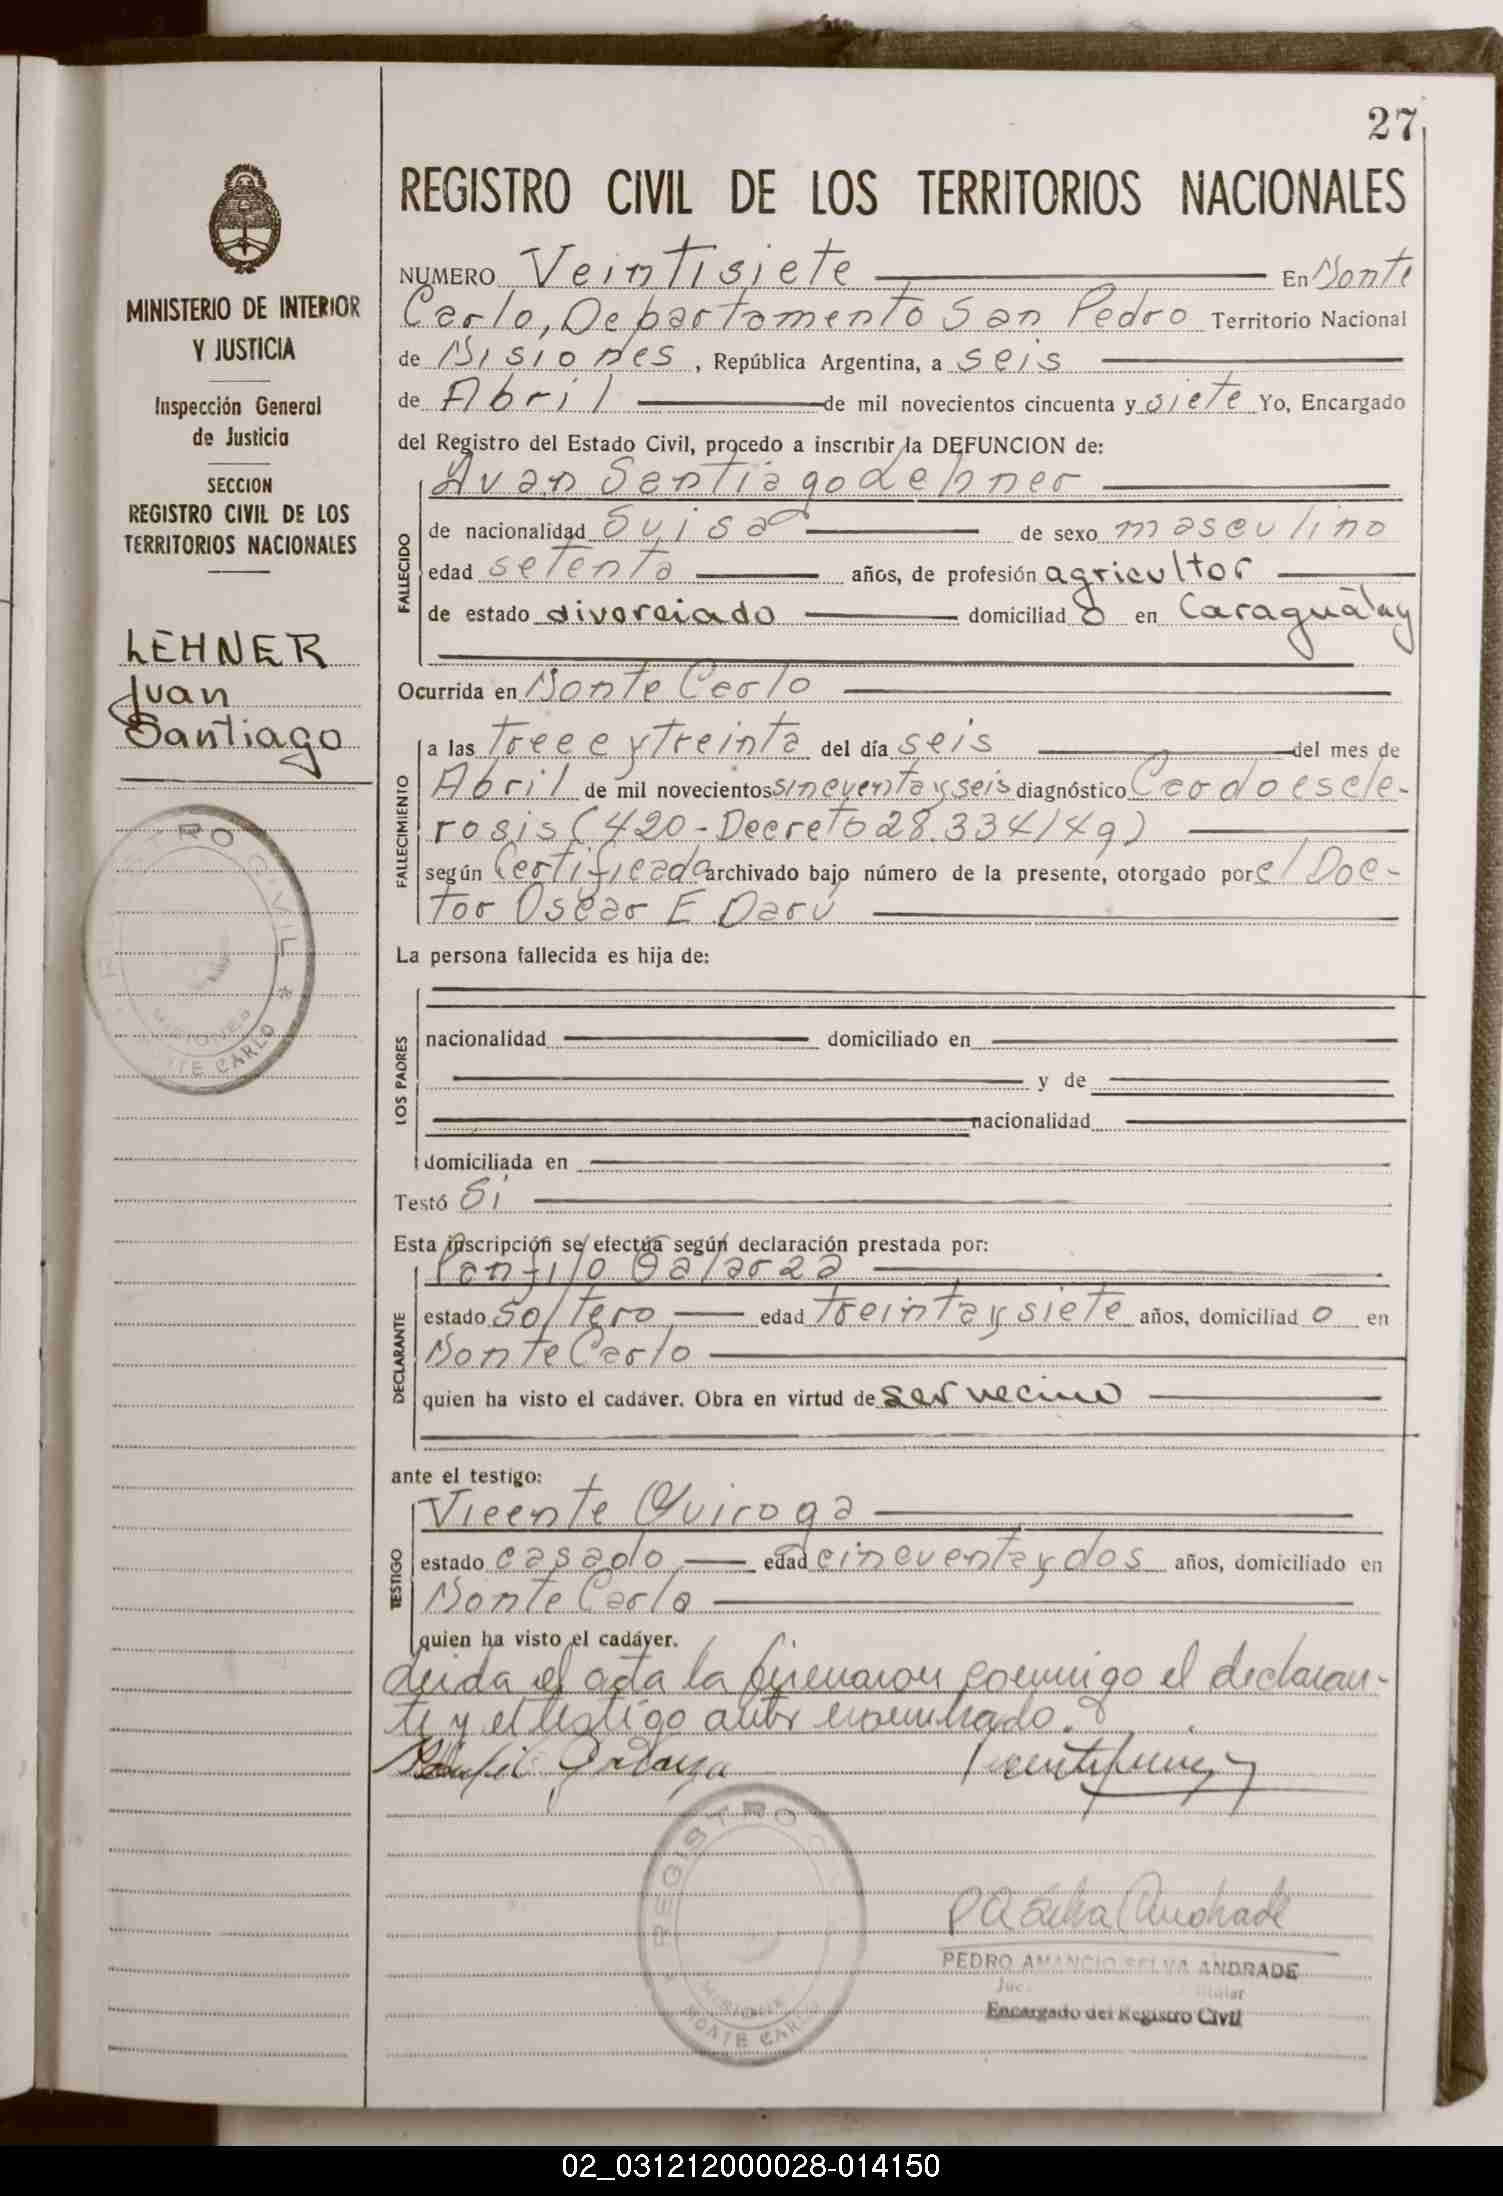 27
REGISTRO CIVIL DE LOS TERRITORIOS NACIONALES
MINISTERIO DE INTERIOR
Y JUSTICIA
Inspección General
de Justicia
SECCION
REGISTRO CIVIL DE LOS
TERRITORIOS NACIONALES
LEHNER
Juan
Santiago
REGISTRO CIVIL
MISIONES
MONTE CARLO
NUMERO Veintisiete En Monte
Carlo, Departamento San Pedro Territorio Nacional
de Misiones, República Argentina, a seis
de Abril de mil novecientos cincuenta y siete Yo, Encargado
del Registro del Estado Civil, procedo a inscribir la DEFUNCION de:
Juan Santiago Lehner
FALLECIDO
de nacionalidad Suisa de sexo masculino
edad setenta años, de profesión agricultor
de estado divorciado domiciliado en Caraguatay
Ocurrida en Monte Carlo
FALLECIMIENTO
a las trece y treinta del día seis del mes de
Abril de mil novecientos sincuenta y seis diagnóstico Cardoescle-
rosis (420-Decreto 28.334/49)
según Certificado archivado bajo número de la presente, otorgado por el Doc-
tor Oscar E. Darú
La persona fallecida es hija de:
LOS PADRES
nacionalidad domiciliado en
y de
nacionalidad
domiciliada en
Testó Si
Esta inscripción se efectúa según declaración prestada por:
Panfilo Galarza
DECLARANTE
estado soltero edad treinta y siete años, domiciliado en
Monte Carlo
quien ha visto el cadáver. Obra en virtud de ser vecino
ante el testigo:
Vicente Quiroga
TESTIGO
estado casado edad cincuenta y dos años, domiciliado en
Monte Carlo
quien ha visto el cadáver.
Leida el acta la firmaron conmigo el declaran-
te y el testigo antes nombrado.
REGISTRO
MISIONES
MONTE CARLO
PEDRO AMANCIO SELVA ANDRADE
Encargado del Registro Civil
02_031212000028-014150